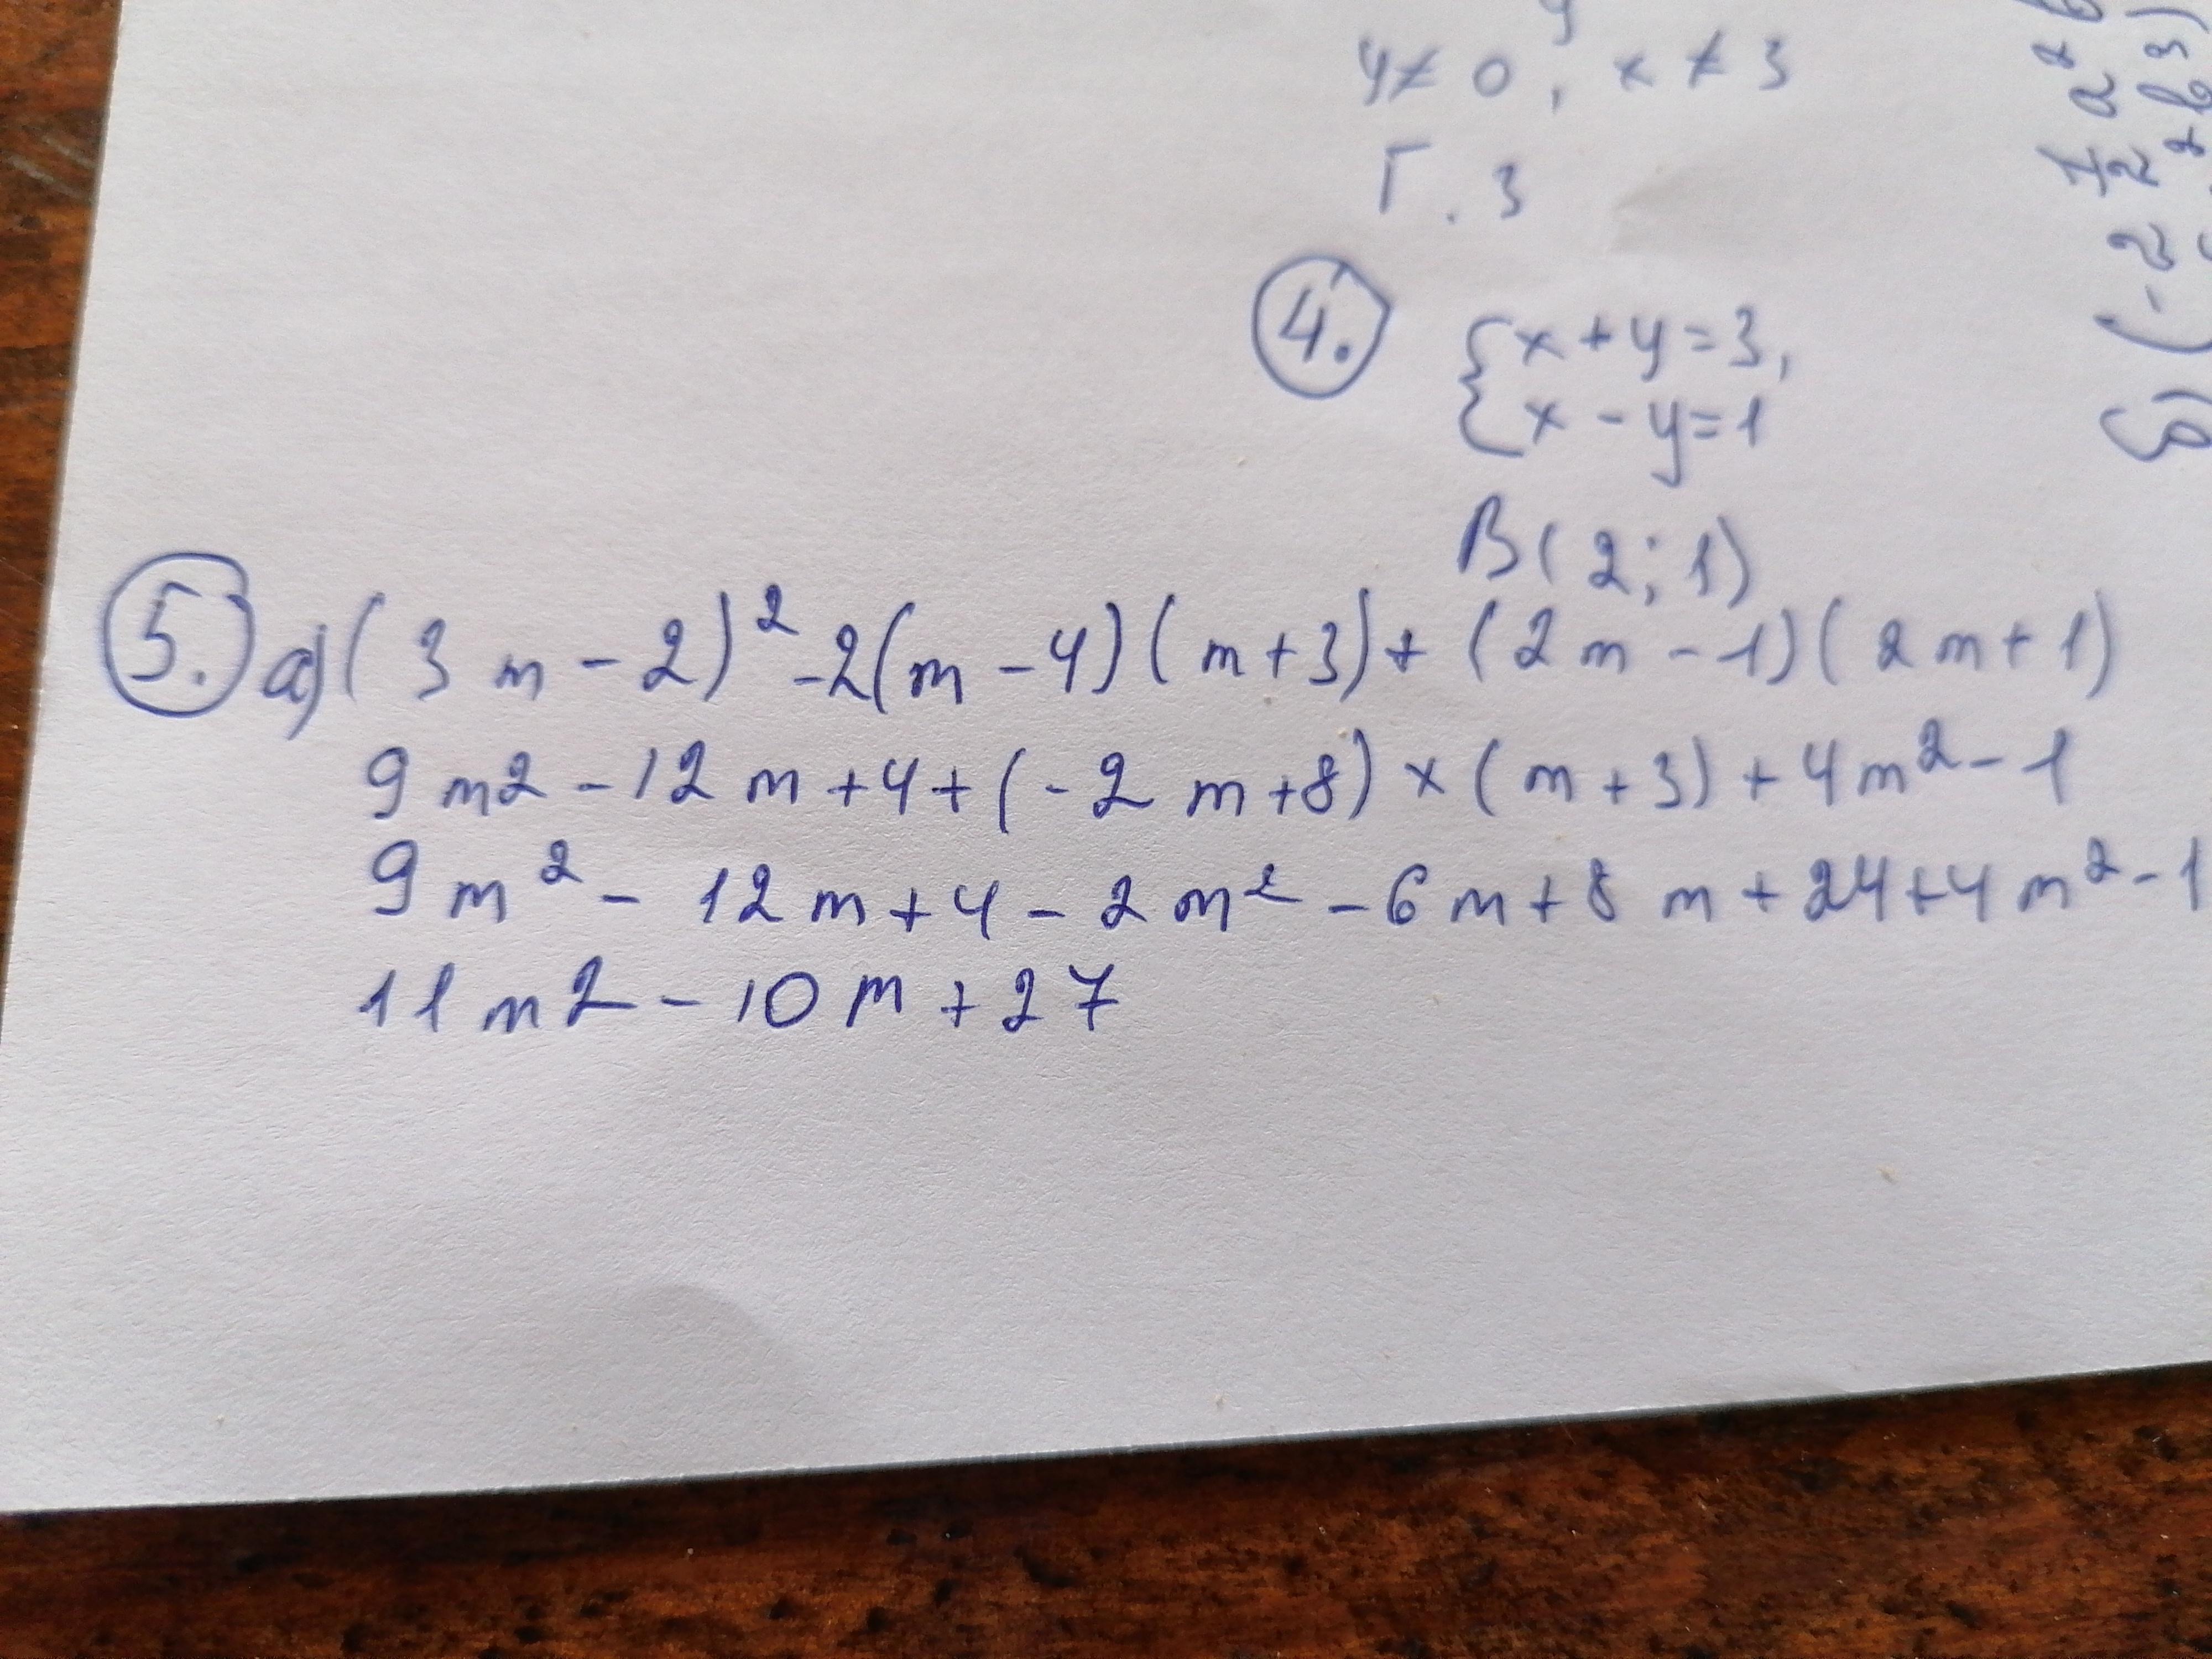 y ≠ 0, x ≠ 3
Г. 3
4. { x + y = 3,
x - y = 1
В (2; 1)
5. а) (3m - 2)² - 2(m - 4)(m + 3) + (2m - 1)(2m + 1)
9m2 - 12m + 4 + (-2m + 8) × (m + 3) + 4m² - 1
9m² - 12m + 4 - 2m² - 6m + 8m + 24 + 4m² - 1
11m2 - 10m + 27